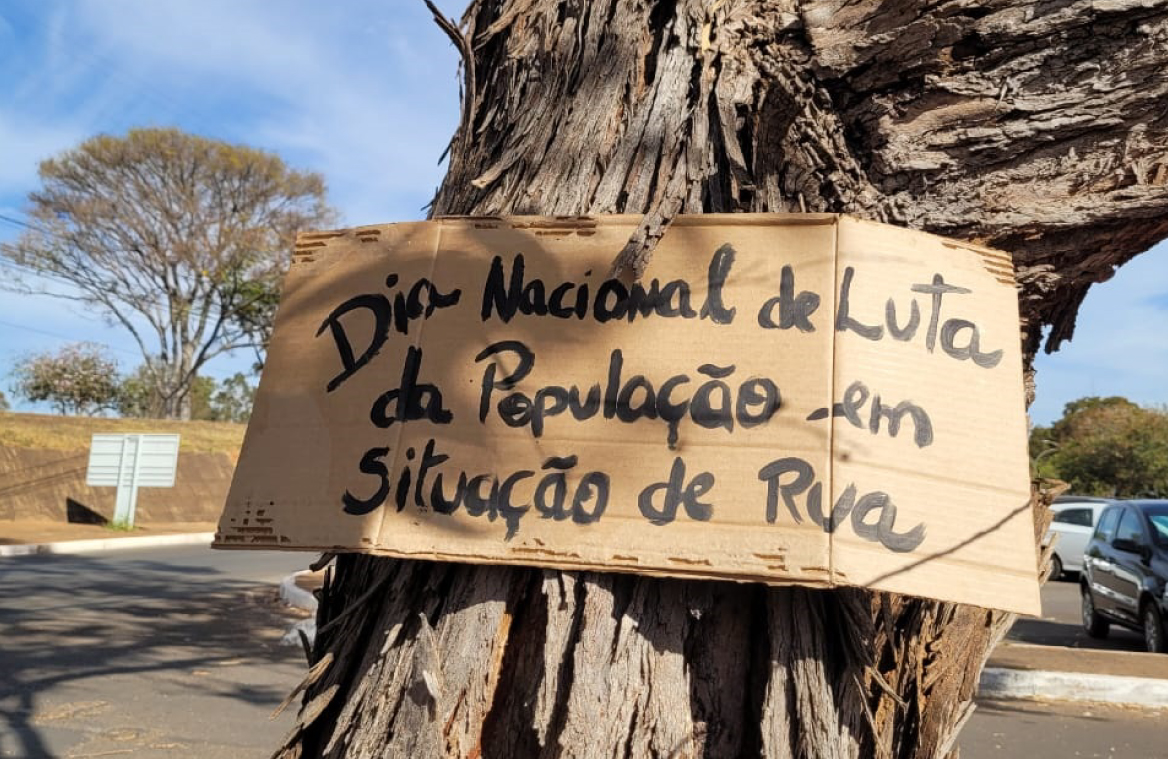 Dia Nacional de Luta
da População em
Situação de Rua